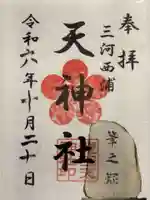 奉拝
三河西浦
天神社
令和六年十月二十日
筆之